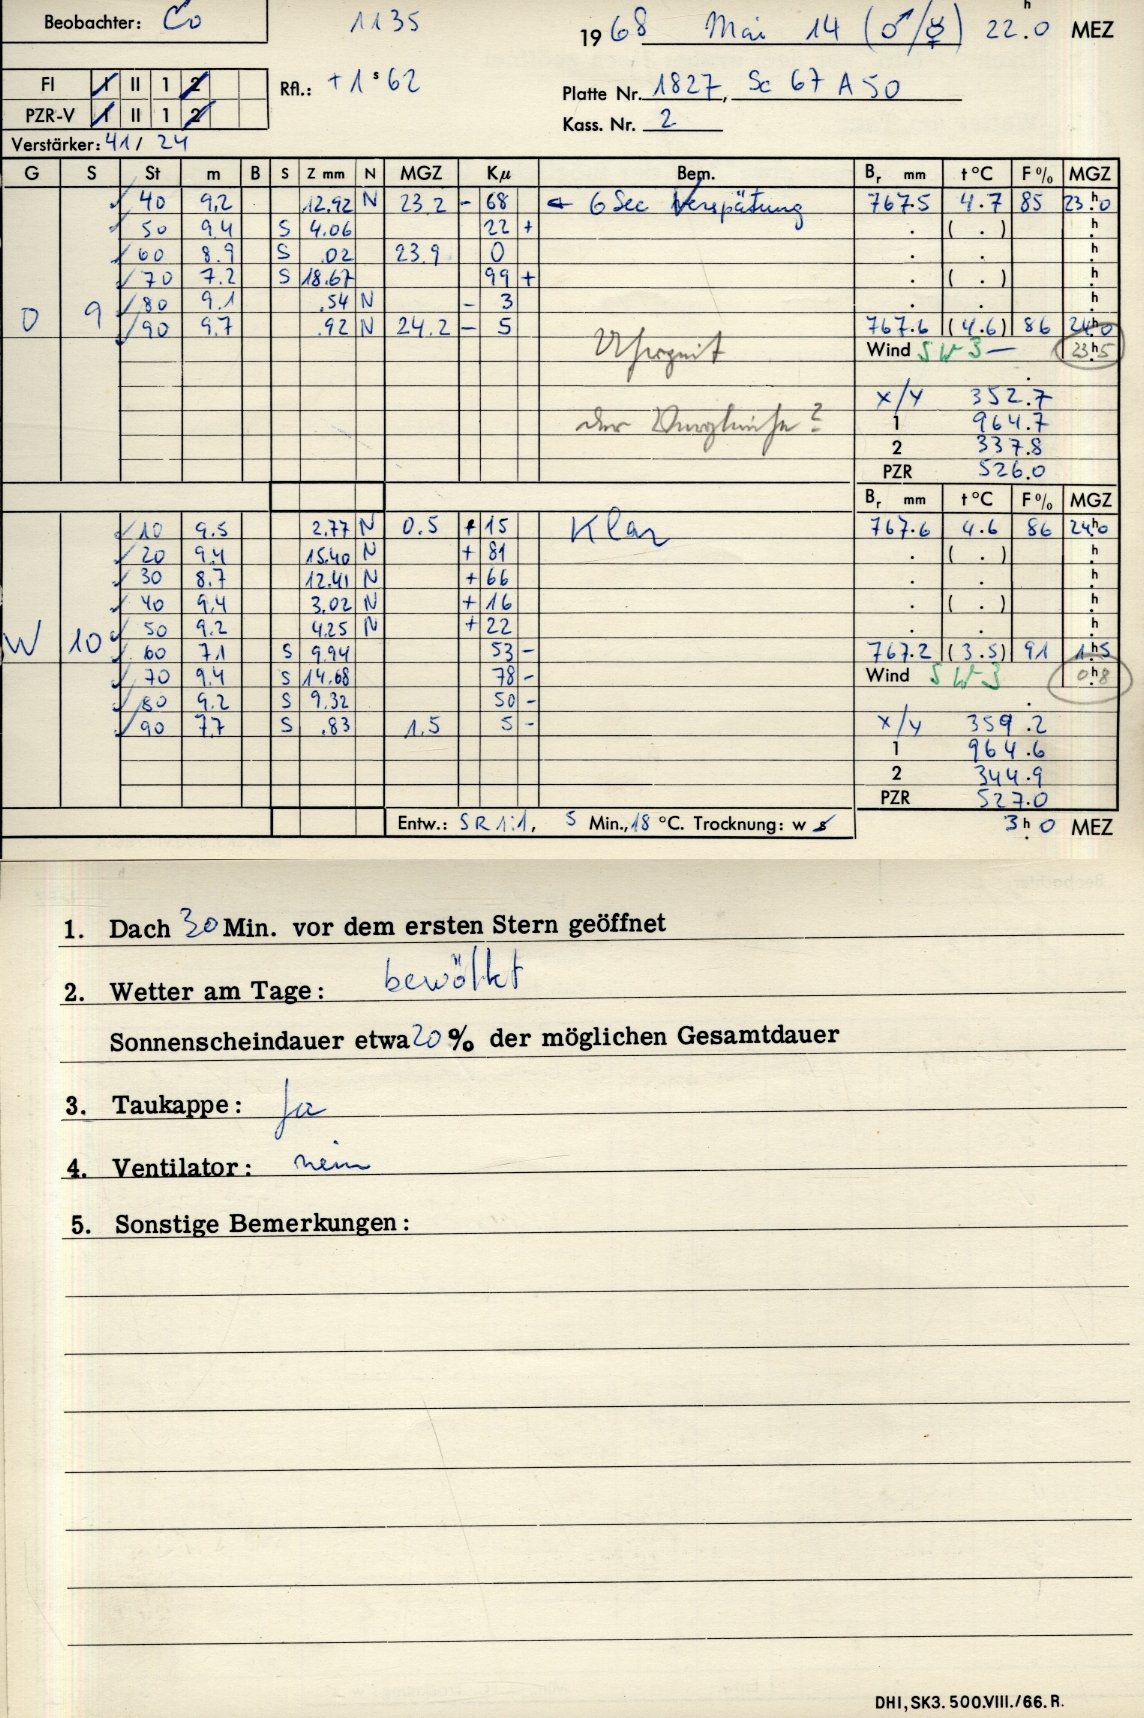 Beobachter: Co 1135 1968 Mai 14 (♂/☿) 22.ʰ0 MEZ
FI I II 1 2 Rfl.: +1ˢ62 Platte Nr. 1827, Sc 67 A 50
PZR-V I II 1 2 Kass. Nr. 2
Verstärker: 41 / 24
G S St m B S Z mm N MGZ Kμ Bem. Br mm t °C F % MGZ
40 9.2 12.92 N 23.2 - 68 ← 6 Sec Verspätung 767.5 4.7 85 23.ʰ0
50 9.4 S 4.06 22 + . ( . ) .ʰ
60 8.9 S .02 23.9 0 . . .ʰ
70 7.2 S 18.67 99 + . ( . ) .ʰ
80 9.1 .54 N - 3 . . .ʰ
O 9 90 9.7 .92 N 24.2 - 5 767.6 (4.6) 86 24.ʰ0
Uhrzeit Wind SW 3 — 23.ʰ5
x/y 352.7
der ? 1 964.7
2 337.8
PZR 526.0
Br mm t °C F % MGZ
10 9.5 2.77 N 0.5 + 15 Klar 767.6 4.6 86 24.ʰ0
20 9.4 15.40 N + 81 . ( . ) .ʰ
30 8.7 12.41 N + 66 . . .ʰ
40 9.4 3.02 N + 16 . ( . ) .ʰ
W 10 50 9.2 4.25 N + 22 . . .ʰ
60 7.1 S 9.94 53 - 767.2 (3.5) 91 1.ʰ5
70 9.4 S 14.68 78 - Wind SW 3 0.ʰ8
80 9.2 S 9.32 50 -
90 7.7 S .83 1.5 5 - x/y 359.2
1 964.6
2 344.9
PZR 527.0
Entw.: SR 1:1, 5 Min., 18 °C. Trocknung: w s 3.ʰ0 MEZ
1. Dach 30 Min. vor dem ersten Stern geöffnet
2. Wetter am Tage: bewölkt
Sonnenscheindauer etwa 20 % der möglichen Gesamtdauer
3. Taukappe: Ja
4. Ventilator: nein
5. Sonstige Bemerkungen:
DHI, SK3. 500.VIII./66. R.